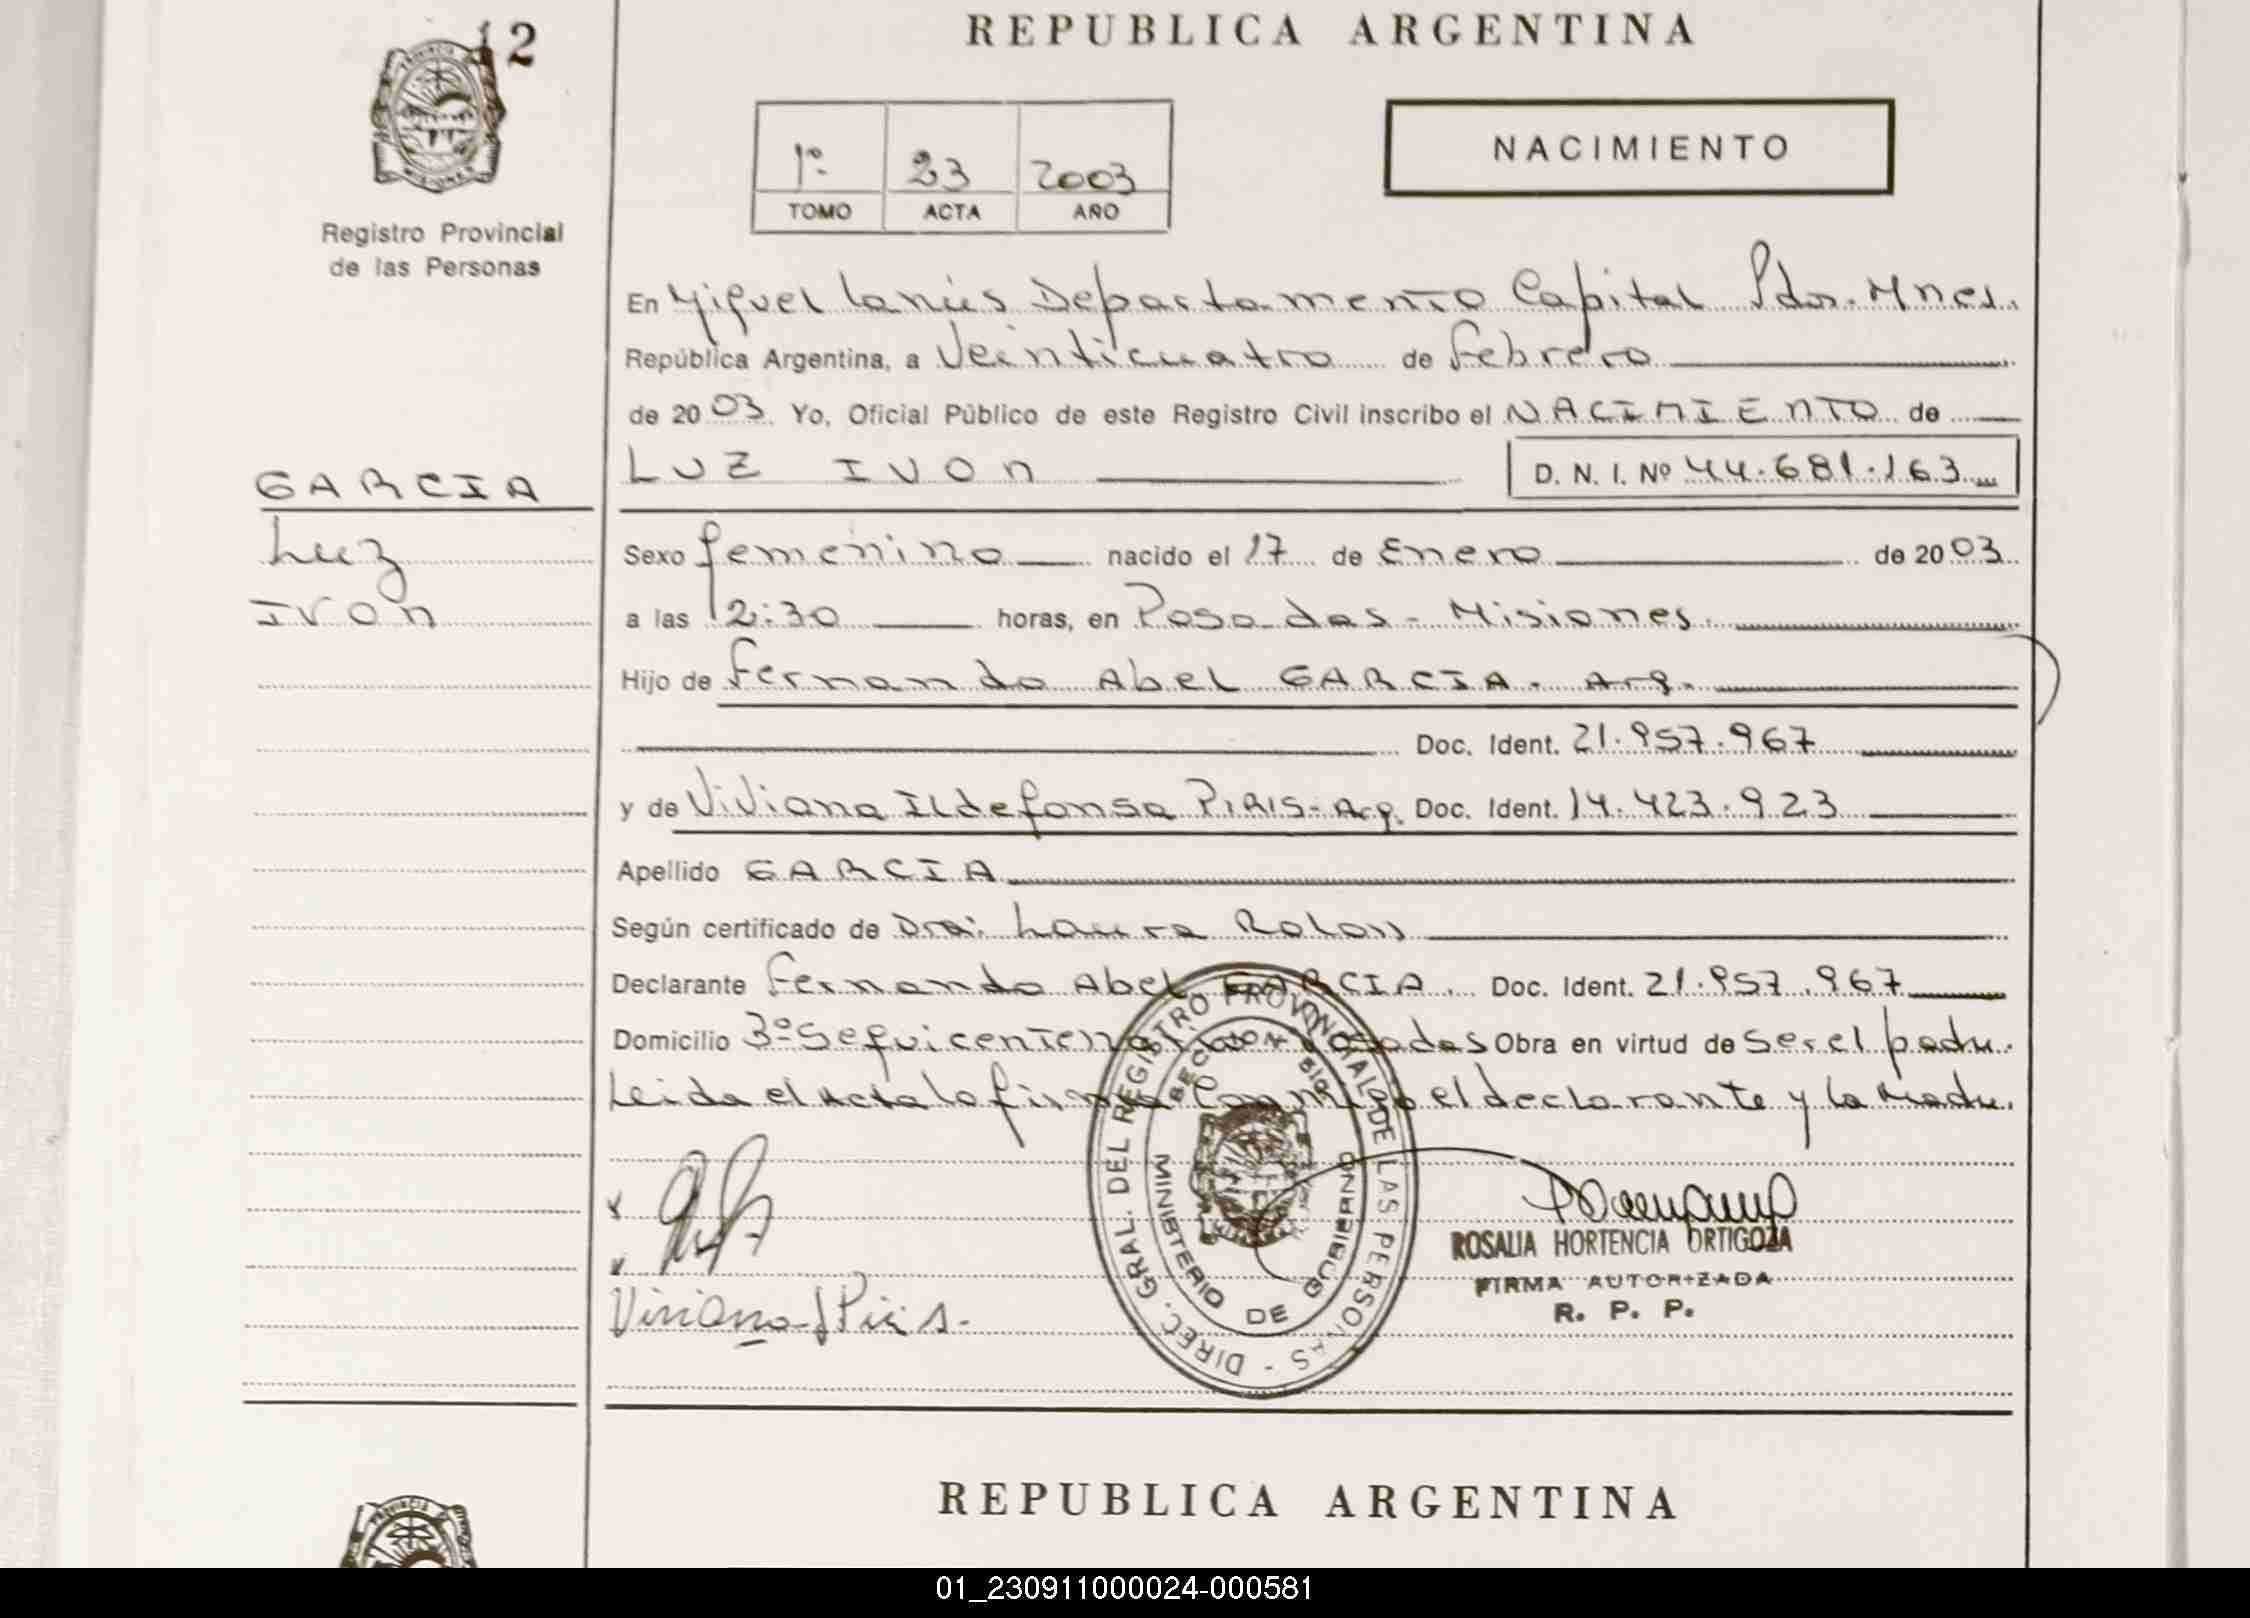 12
PROVINCIA
MISIONES
Registro Provincial
de las Personas
REPUBLICA ARGENTINA
1º 23 2003
TOMO ACTA AÑO
NACIMIENTO
En Miguel Lanús Departamento Capital Pdas. Mnes.
República Argentina, a Veinticuatro de Febrero
de 2003 Yo, Oficial Público de este Registro Civil inscribo el NACIMIENTO de
LUZ IVON D. N. I. Nº 44.681.163
GARCIA
Luz
IVON
Sexo femenino nacido el 17 de Enero de 2003
a las 12:30 horas, en Posadas - Misiones.
Hijo de Fernando Abel GARCIA. Arg.
Doc. Ident. 21.957.967
y de Viviana ILdefonsa PIRIS - Arg. Doc. Ident. 14.423.923
Apellido GARCIA
Según certificado de Dra. Laura Rolon
Declarante Fernando Abel GARCIA. Doc. Ident. 21.957.967
Domicilio 3º Sequicentenario Posadas Obra en virtud de Ser el padre.
Leida el Acta la firma Conmigo el declarante y la Madre.
DIREC. GRAL. DEL REGISTRO PROVINCIAL DE LAS PERSONAS -
MINISTERIO DE GOBIERNO
Viviana I Piris.
ROSALIA HORTENCIA ORTIGOZA
FIRMA AUTORIZADA
R. P. P.
REPUBLICA ARGENTINA
PROVINCIA
01_230911000024-000581